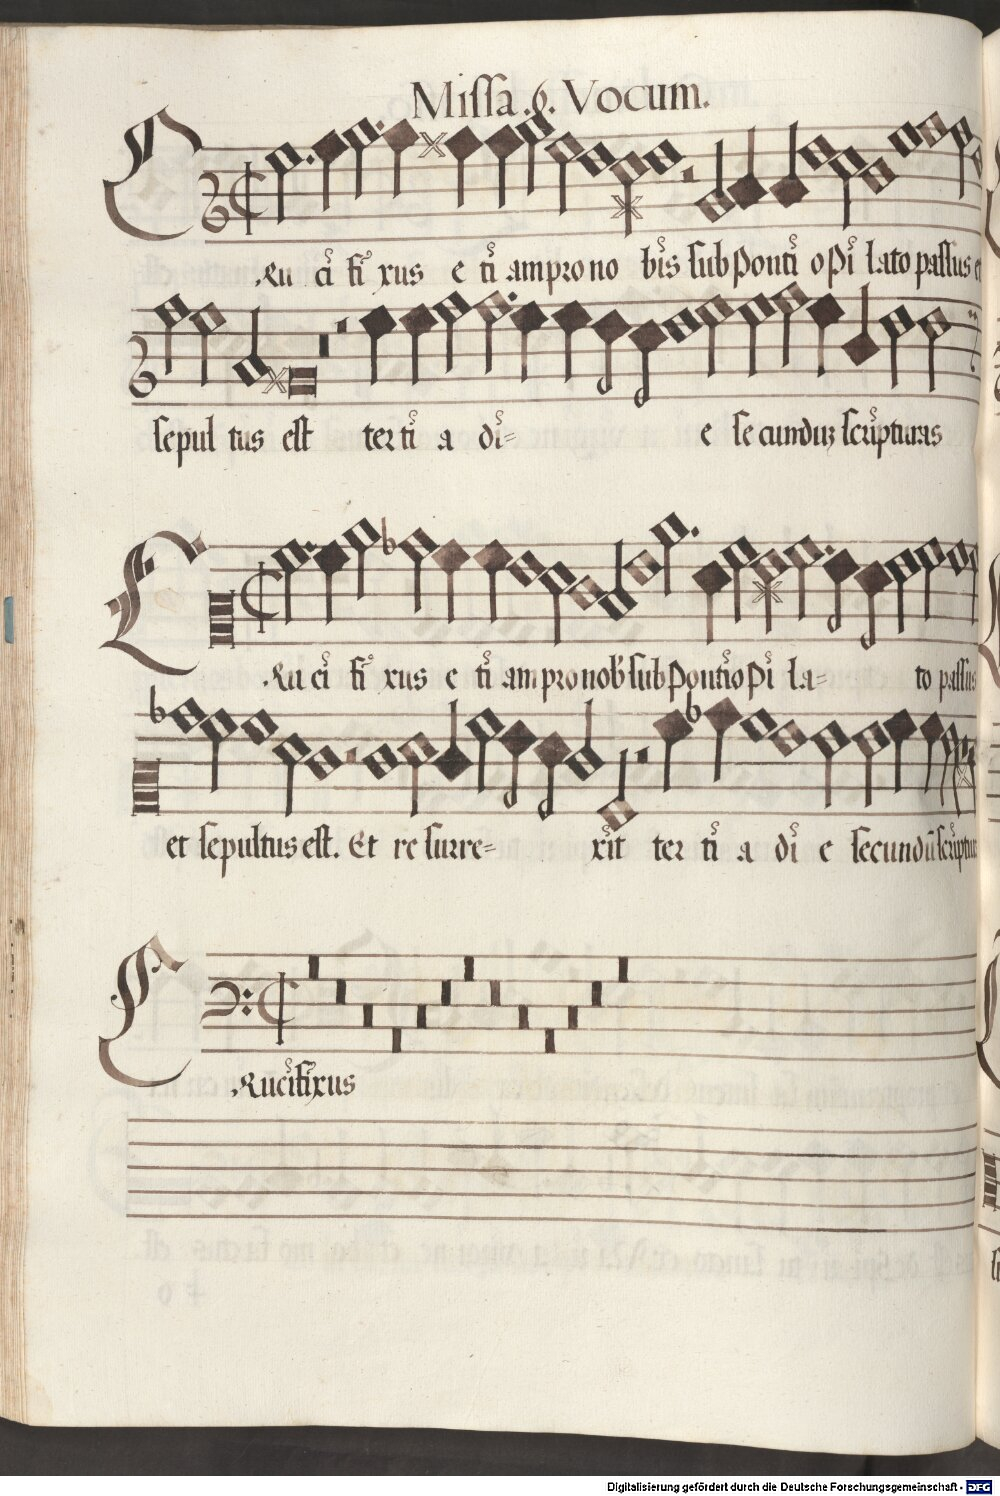 Missa .6. Vocum.
CRuci fi xus e ti am pro no bis sub Ponti o Pi lato passus et
sepul tus est ter ti a di= e se cunduz scripturas
CRuci fi xus e ti am pro nob' sub Pontio Pi la= to passus
et sepultus est. Et re surre= xit ter ti a di e secundū scriptur
CRucifixus
Digitalisierung gefördert durch die Deutsche Forschungsgemeinschaft - DFG